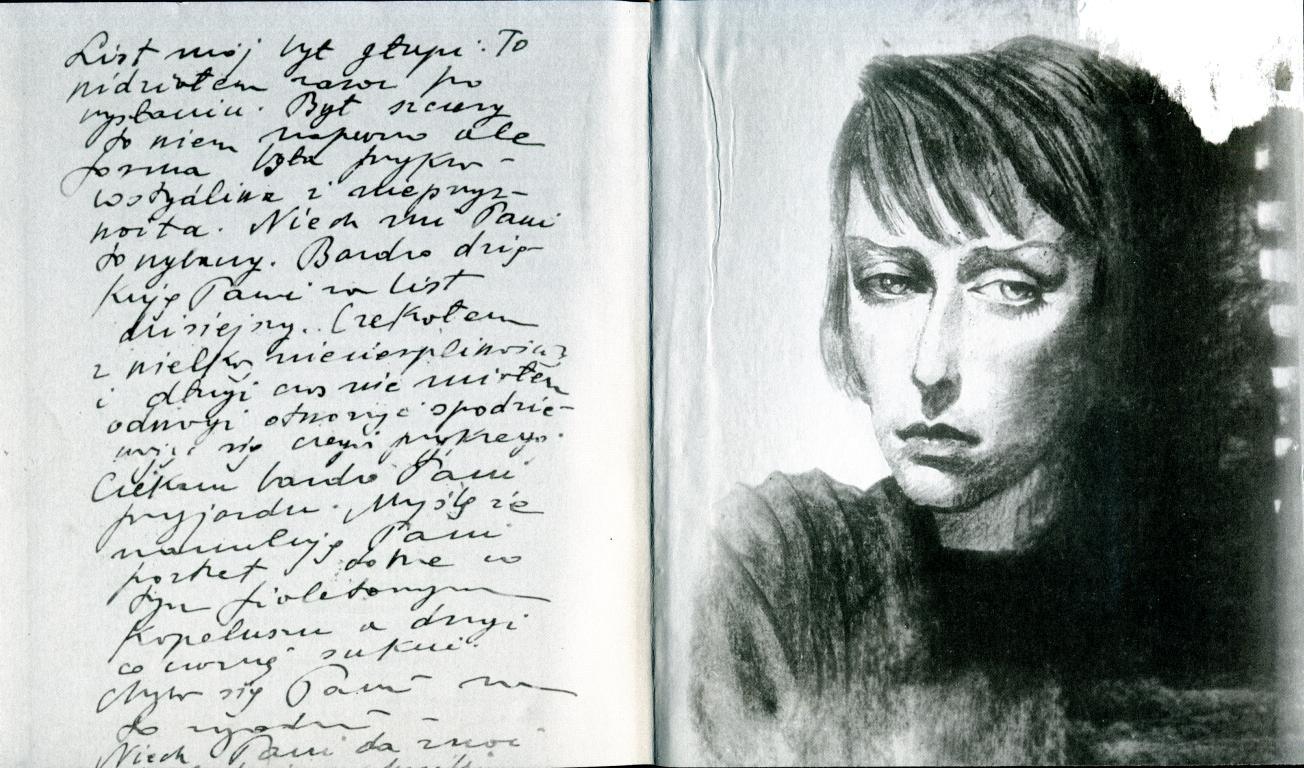 List mój był głupi. To
widziałem zaraz po
wysłaniu. Był szczery
to wiem napewno ale
forma była przykro-
wstydliwa i nieprzyz-
woita. Niech mi Pani
to wybaczy. Bardzo dzię-
kuję Pani za list
dzisiejszy. Czekałem
z wielką niecierpliwością
i długi czas nie miałem
odwagi otworzyć spodzie-
wając się czegoś przykrego.
Czekam bardzo Pani
przyjazdu. Myślę że
namaluję Pani
portret
tym fioletowym
kapeluszu a drugi
w czarnej sukni.
się Pani na
to zgodzi
Niech Pani da znać